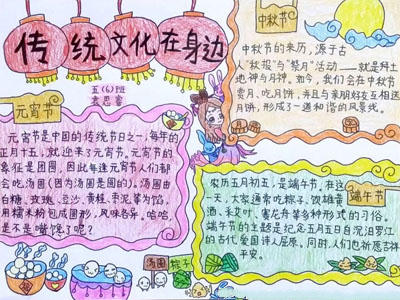 传统文化在身边
五(6)班
袁思睿
元宵节
元宵节是中国的传统节日之一,每年的
正月十五,就迎来了元宵节。元宵节的
象征是团圆,因此每逢元宵节人们都
会吃汤圆(因为汤圆是圆的)。汤圆由
白糖、玫瑰、豆沙、黄桂、枣泥等为馅,
用糯米粉包成圆形,风味各异,哈哈,
是不是嘴馋了呢?
汤圆
粽子
中秋节
中秋节的来历,源于古
人"秋报"与"祭月"活动——就是拜土
地神与月神。如今,我们会在中秋节
赏月、吃月饼,并且与亲朋好友互相送
月饼,形成了一道和谐的风景线。
端午节
农历五月初五,是端午节。在这
一天,大家通常吃粽子、饮雄黄
酒、赛龙舟等多种形式的习俗。
端午节的主题是纪念五月五日自沉汨罗江
的古代爱国诗人屈原。同时,人们也祈愿吉祥
平安。